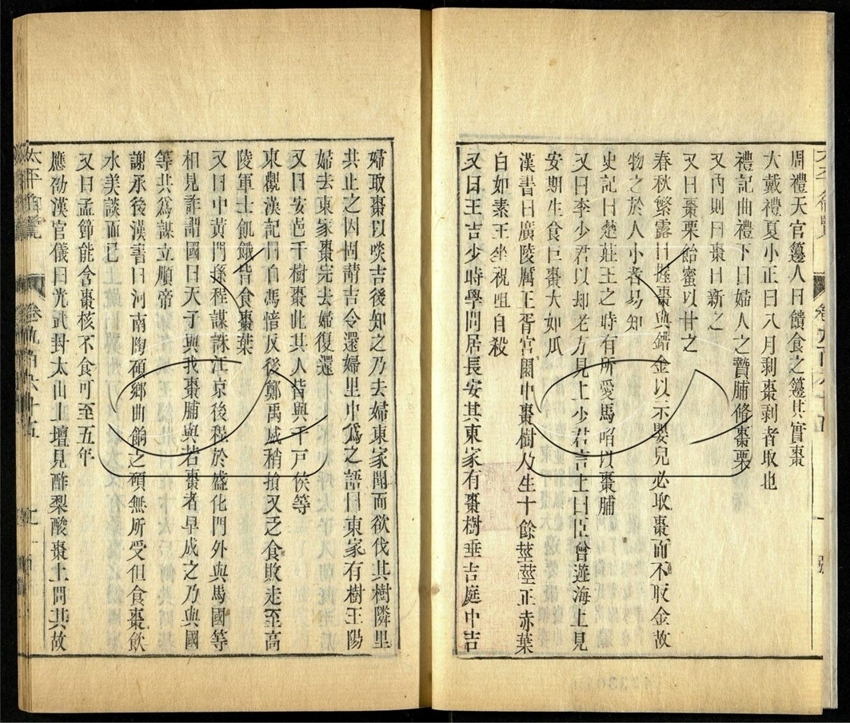 周禮天官籩人曰饋食之籩其實棗
大戴禮夏小正曰八月剥棗剥者取也
禮記曲禮下曰婦人之贄脯脩棗栗
又內則曰棗曰新之
又曰棗栗飴蜜以甘之
春秋繁露曰握棗與錯金以示嬰兒必取棗而不取金故
物之於人小者易知
史記曰楚莊王之時有所愛馬啗以棗脯
又曰李少君以却老方見上少君言上曰臣曾遊海上見
安期生食巨棗大如瓜
漢書曰廣陵厲王胥宮園中棗樹生十餘莖莖正赤葉
自如素王坐祝詛自殺
又曰王吉少時學問居長安其東家有棗樹垂吉庭中吉
婦取棗以啖吉後知之乃去婦東家聞而欲伐其樹隣里
共止之因固請吉令還婦里中為之語曰東家有樹王陽
婦去東家棗完去婦復還
又曰安邑千樹棗此其人皆與千戶侯等
東觀漢記曰自馮愔反後鄧禹威稍損又乏食敗走至高
陵軍士飢餓皆食棗葉
又曰中黃門孫程謀誅江京後程於盛化門外與馬國等
相見詐謂國曰天子與我棗脯與若棗者早成之乃與國
等共為謀立順帝
謝承後漢書曰河南陶碩鄉曲餉之碩無所受但食棗飲
水美談而已
又曰孟節能含棗核不食可至五年
應劭漢官儀曰光武封太山上壇見酢梨酸棗上問其故
太平御覽 卷九百六十五